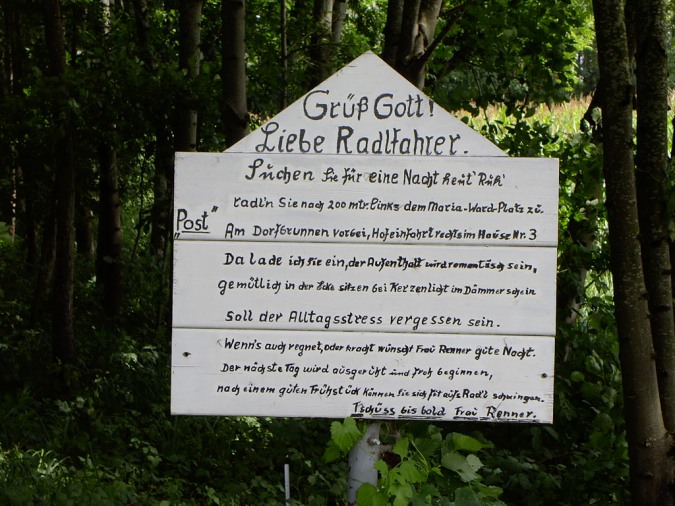 Grüß Gott!
Liebe Radlfahrer.
Suchen Sie für eine Nacht heut' Ruh'
radl'n Sie nach 200 mtr. links dem Maria-Ward-Platz zu.
"Post"
Am Dorfbrunnen vorbei, Hofeinfahrt rechts im Hause Nr. 3
Da lade ich sie ein, der Aufenthalt wird romantisch sein,
gemütlich in der Ecke sitzen bei Kerzenlicht im Dämmerschein
soll der Alltagsstress vergessen sein.
Wenn's auch regnet, oder kracht wünscht Frau Renner gute Nacht.
Der nächste Tag wird ausgeruht und froh beginnen,
nach einem guten Frühstück können Sie sich fit aufs Rad'l schwingen.
Tschüss bis bald Frau Renner.